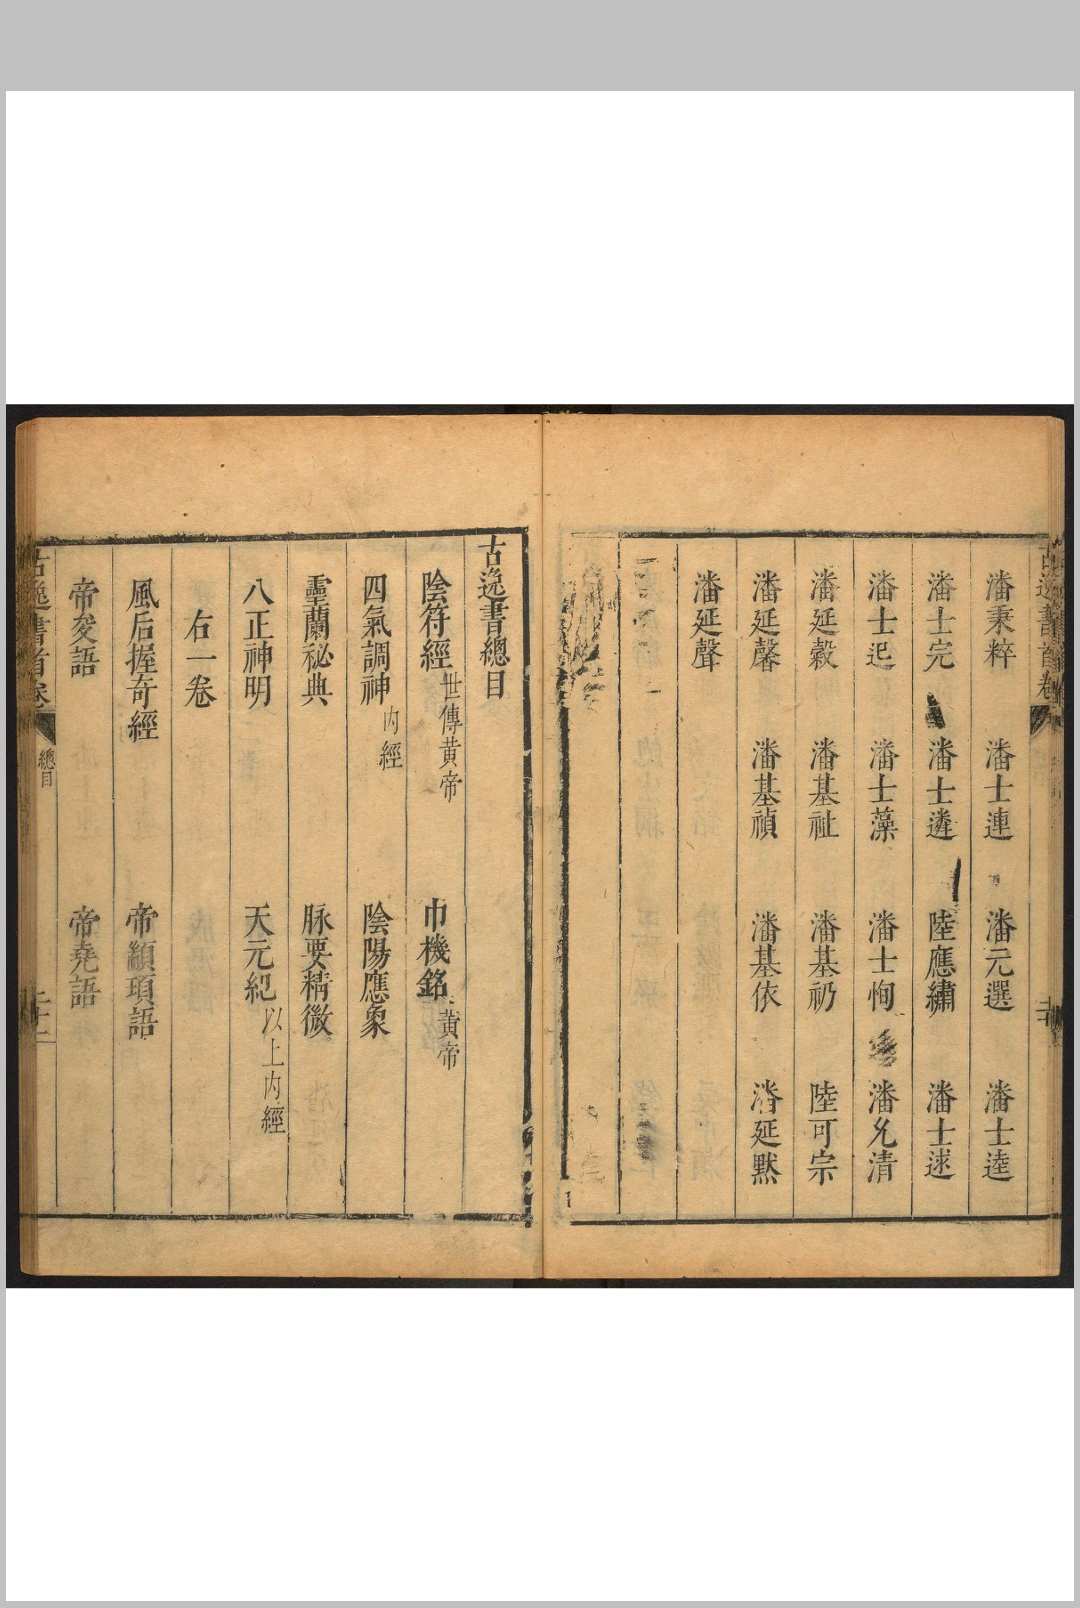 古逸書首卷
潘秉粹　潘士連　潘元選　潘士逵
潘士完　潘士遴　陸應繡　潘士逑
潘士　潘士藻　潘士恂　潘允清
潘延穀　潘基祉　潘基礽　陸可宗
潘延馨　潘基禎　潘基依　潘延默
潘延聲
古逸書總目
陰符經 世傳黃帝　巾機銘 黃帝
四氣調神 內經　陰陽應象
靈蘭秘典　脉要精微
八正神明　天元紀 以上內經
右一卷
風后握奇經　帝顓頊語
帝夋語　帝堯語
古逸書首卷　總目　二十一